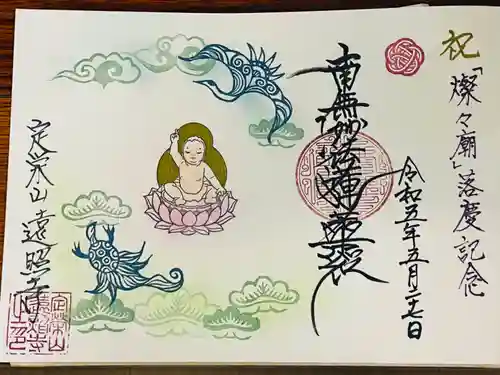 祝
「燦々廟」落慶記念
令和五年五月二十七日
南無妙法蓮華経
定栄山 遠照寺